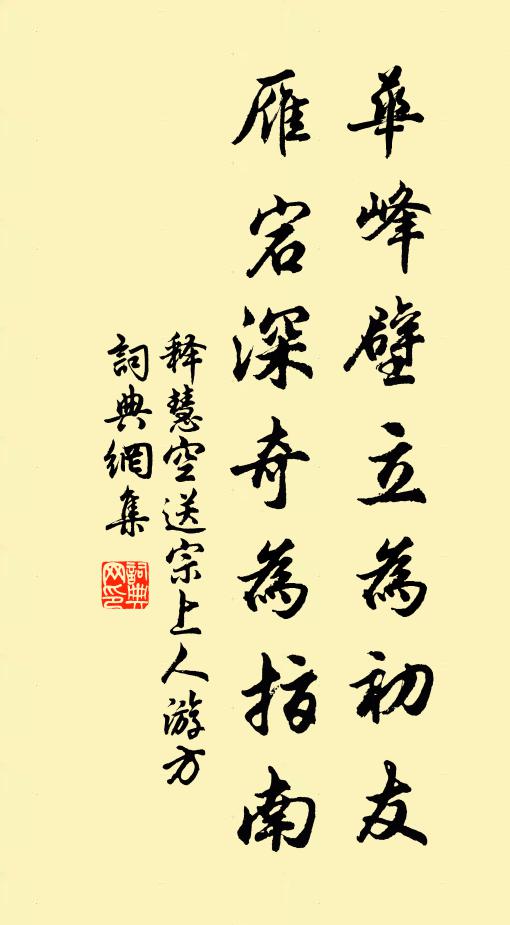 華峰壁立為初友
雁宕深奇為指南
释慧空送宗上人游方
詞典網集
詞典网印